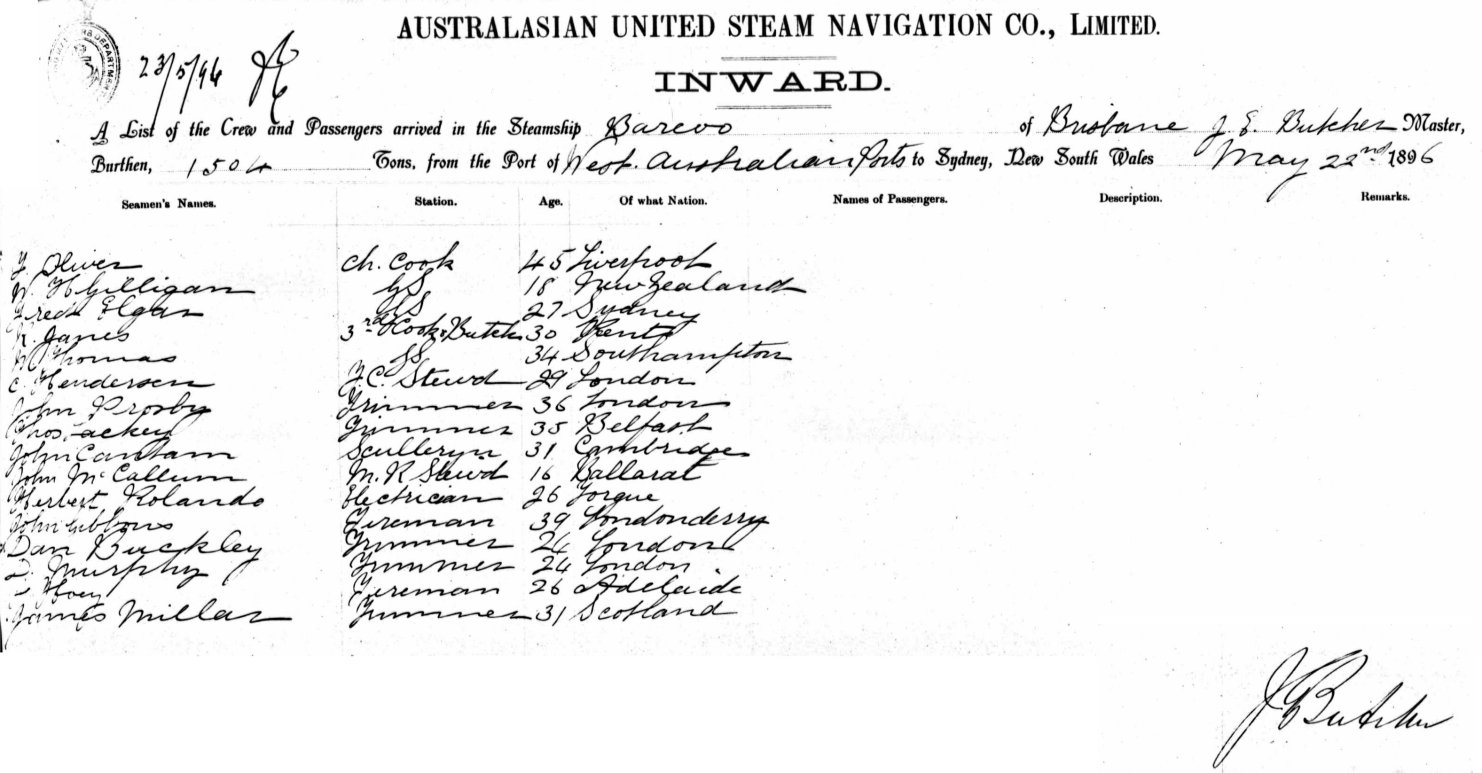 AUSTRALASIAN UNITED STEAM NAVIGATION CO., LIMITED.
23/5/96
INWARD.
A List of the Crew and Passengers arrived in the Steamship Barcoo of Brisbane J. E. Butcher Master,
Burthen, 1504 Tons, from the Port of West. Australian Ports to Sydney, New South Wales May 22nd 1896
Seamen's Names. Station. Age. Of what Nation. Names of Passengers. Description. Remarks.
Oliver Ch. Cook 45 Liverpool
W. H Gilligan GS 18 New Zealand
Fred Elgar GS 27 Sydney
Janes 3rd Cook & Butch 30 Kent
W Thomas 34 Southampton
C. Hendersen F. C. Stewd 29 London
John Prosby Trimmer 36 London
Thos. Lackey Trimmer 35 Belfast
John Cantam Sculleryn 31 Cambridge
John McCallum M. R Stewd 16 Ballarat
Herbert Rolando Electrician 26 Torque
John Gibbons Fireman 39 Londonderry
Dan Buckley Trimmer 24 London
Murphy Trimmer 24 London
Hoey Fireman 26 Adelaide
James Millar Trimmer 31 Scotland
J E Butcher